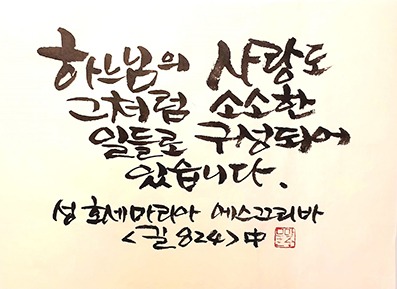 하느님의 사랑도
그처럼 소소한
일들로 구성되어
있습니다.
성 호세마리아 에스끄리바
<길 824> 中